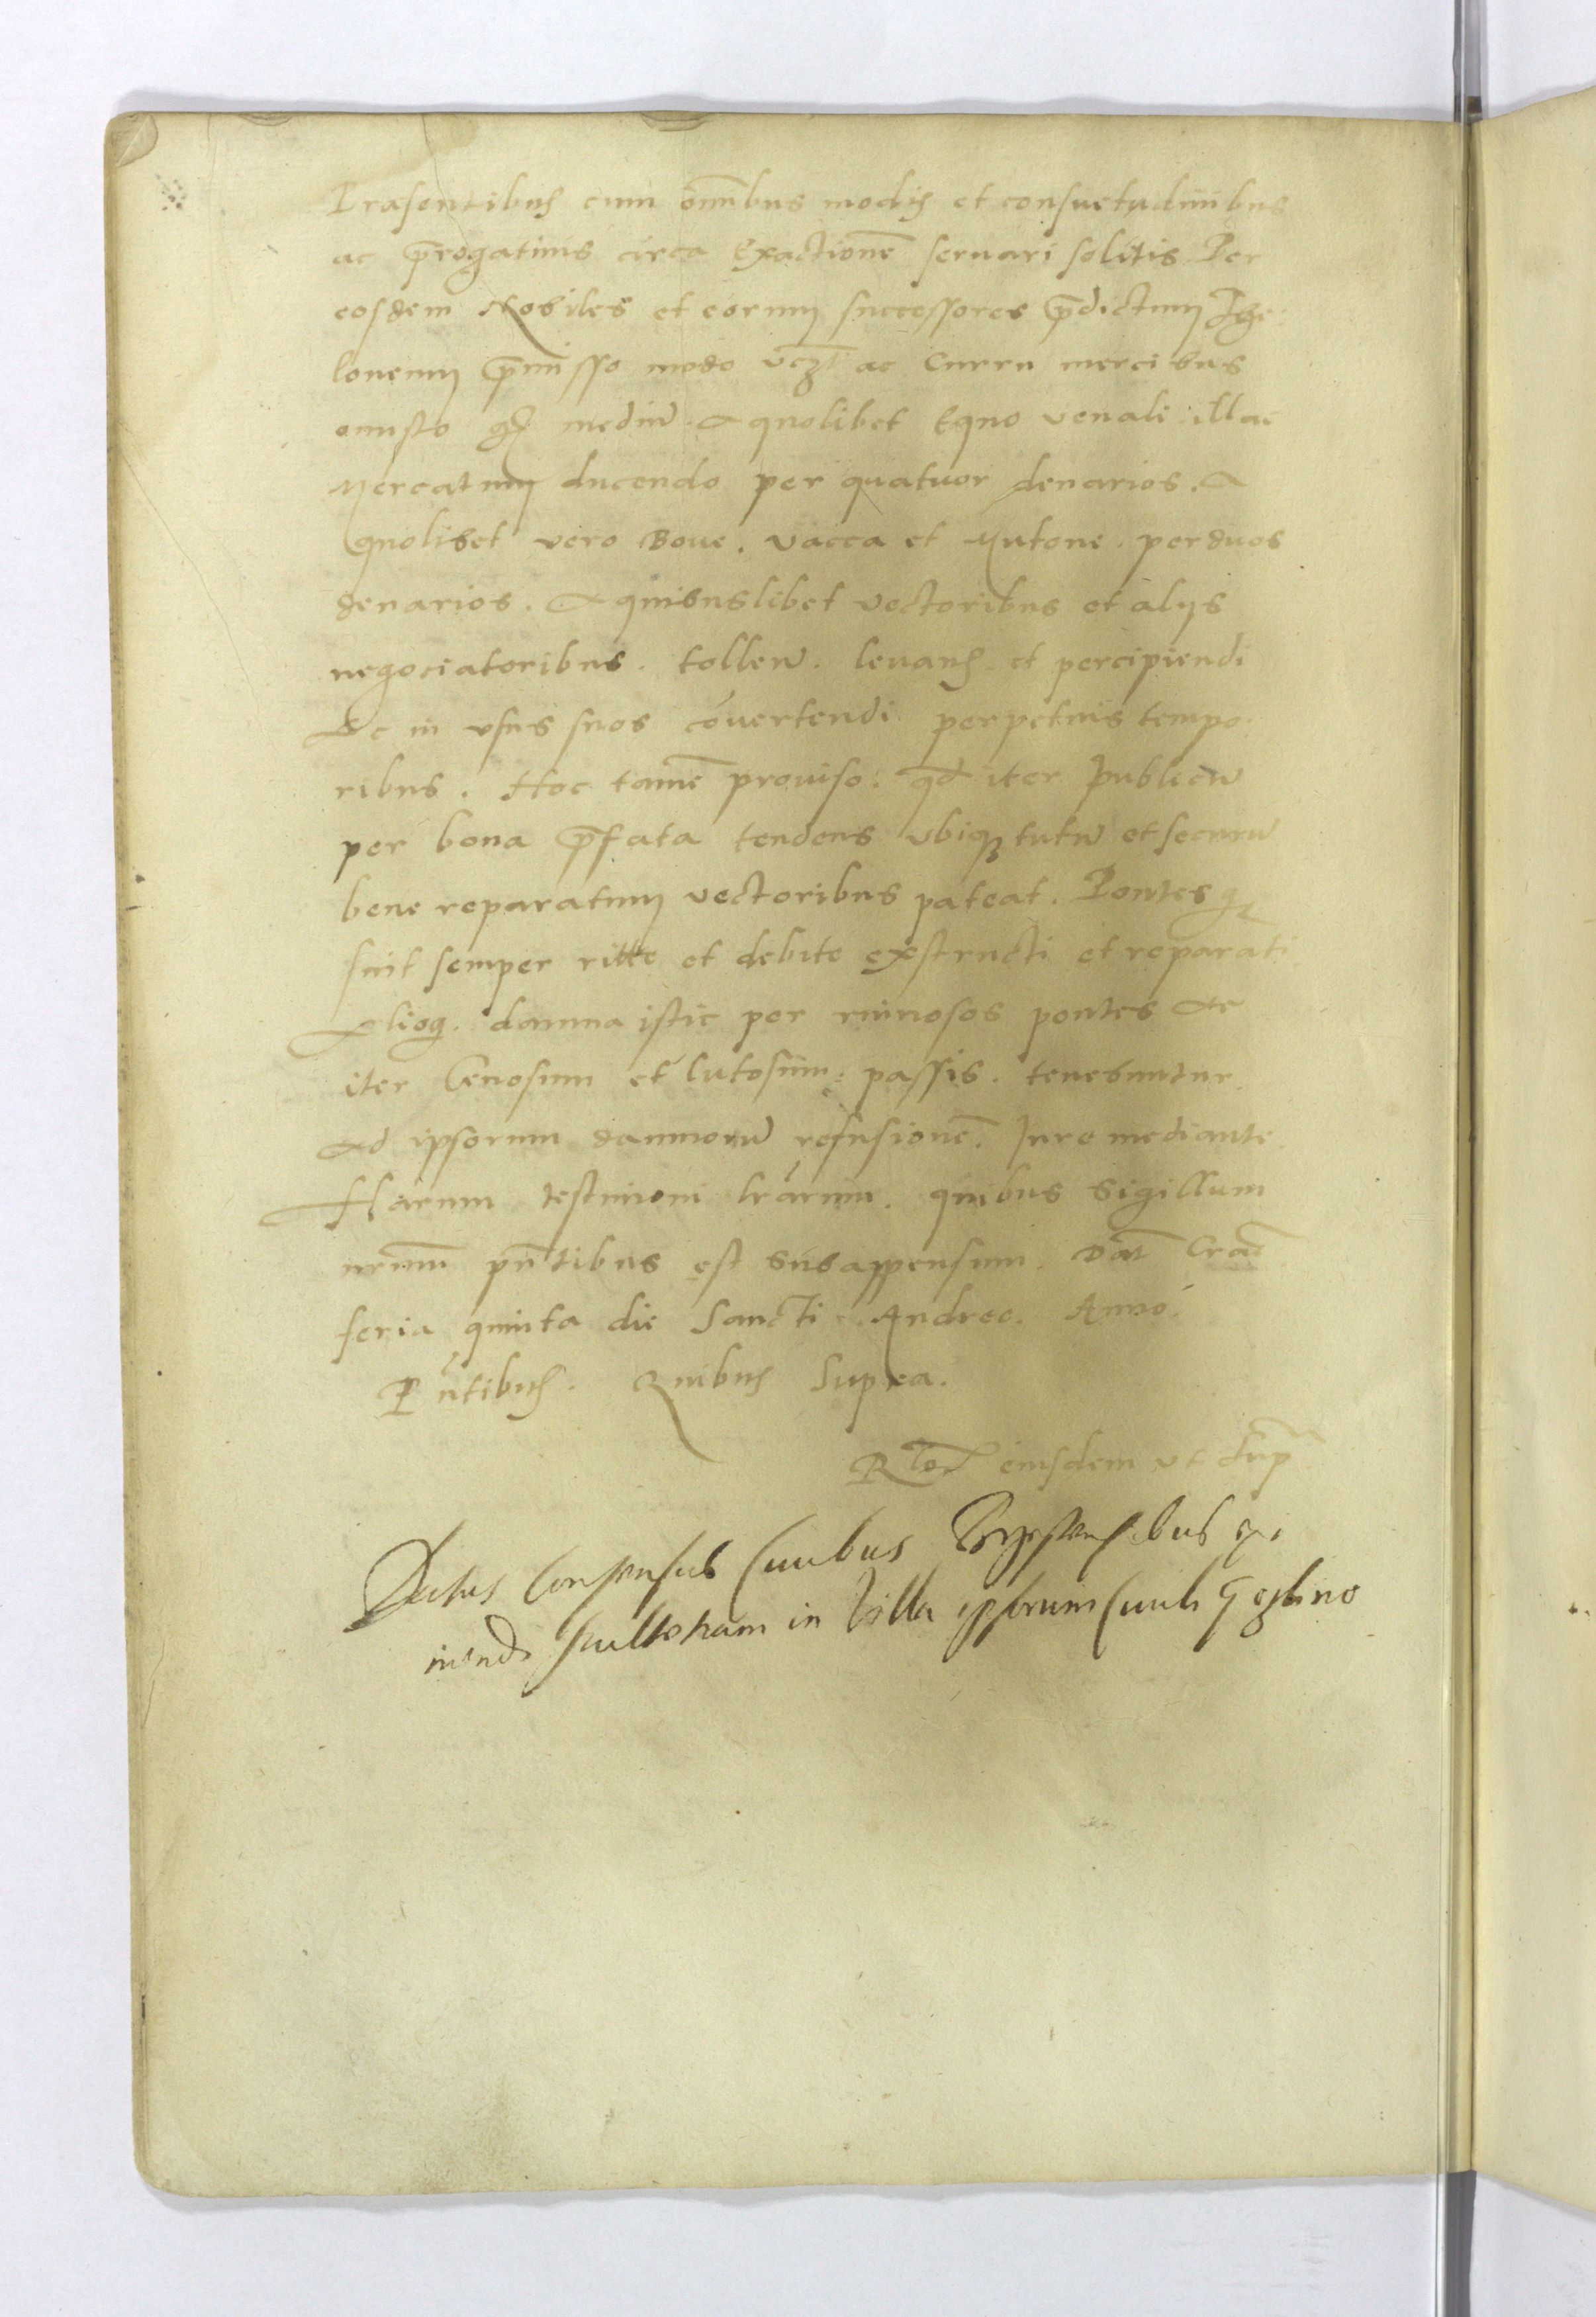 Prasentibus cum oīnibus modis et consuetudinibus
ac p̄rogatiuis circa Exactionē seruari solitis Per
eosdem Nobiles et eorum successores p̄dictum The
loneum p̄misso modo vczt ac Curru mercibus
onusto mediū. A quolibet Equo venali illac
Mercatum ducendo per quatuor denarios. A
quolibet vero Boue. vacca et Mutone. per duos
denarios. A quibuslibet vectoribus et alijs
negociatoribus. tollen̄. leuand. et percipiendi
Ac in vsus suos cōuertendi perpetuis tempo
ribus. Hoc tamē prouiso. qd iter publicū
per bona p̄fata tendens vbiqʒ tutū et securū
bene reparatum vectoribus pateat. Pontesqʒ
sint semper ritte et debite exstructi et reparati
Alioq. damna istic per ruinosos pontes Ac
iter Cenosum et lutosum: passis. tenebuntur.
Ad ipsorum damnorū refusionē. Jure mediante.
Harum testimoni lrarum. quibus Sigillum
nrum pn̄tibus est subappensum. Dat Crac̄
feria quinta die Sancti Andree. Anno.
Pn̄tibus. Quibus Supra.
Rlod eiusdem vt sup
Datus Consensus Ciuibus exi
mendi scultetiam in Villa ipsorum Ciuili